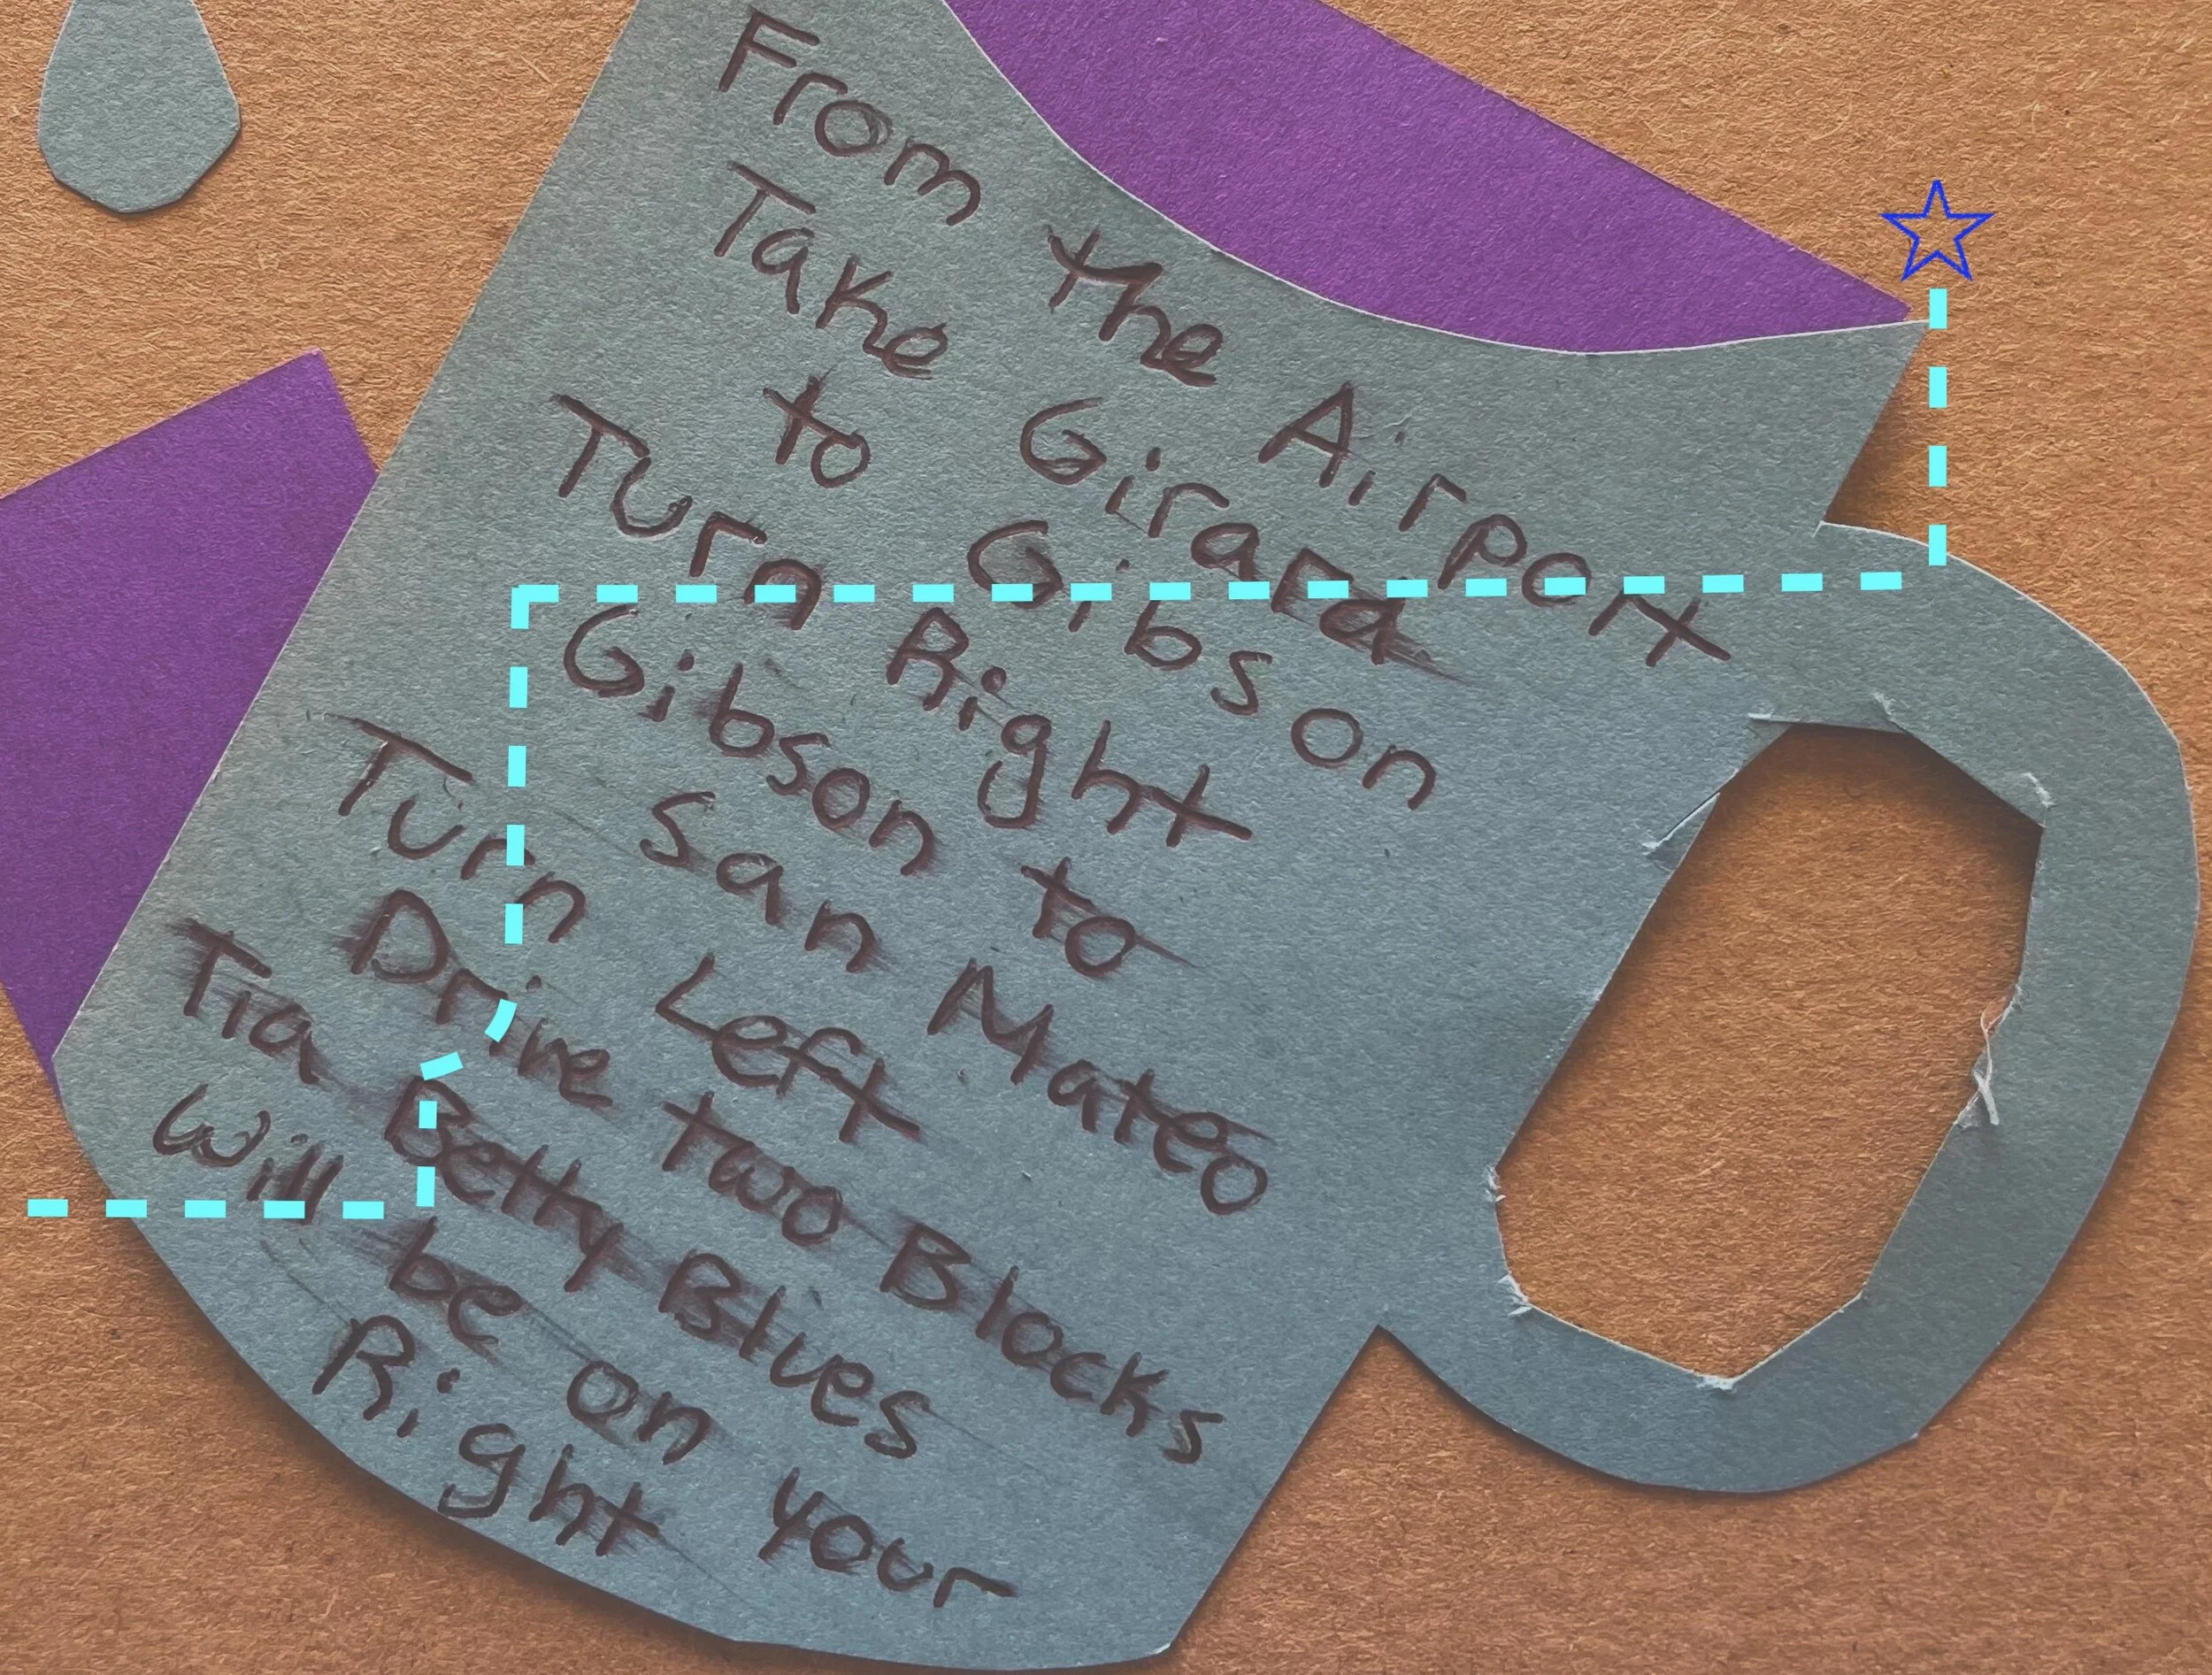 From the Airport
Take Girard
to Gibson
Turn Right
Gibson to
San Mateo
Turn Left
Drive two Blocks
Tia Betty Blues
Will be on your
Right